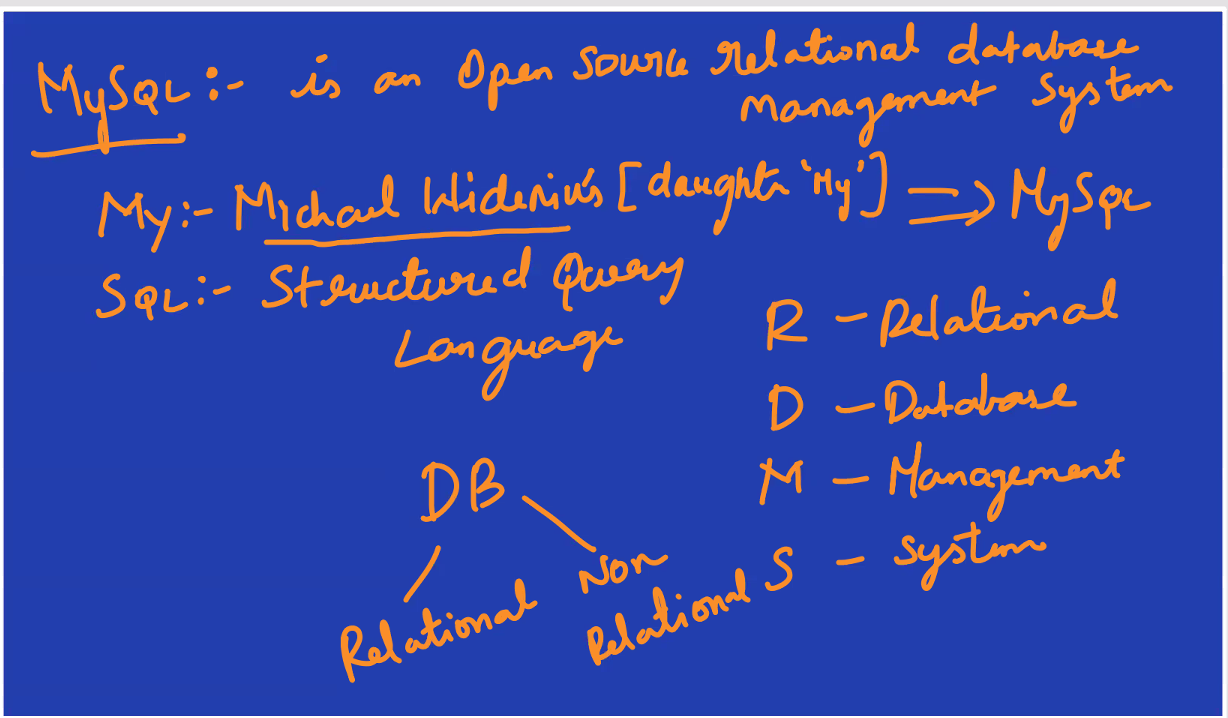 MySQL:- is an Open Source Relational database
Management System
My:- Michael Widenius's [daughter 'My'] ⟹ MySQL
SQL:- Structured Query
Language
R - Relational
D - Database
M - Management
S - System
DB
Relational
Non
Relational